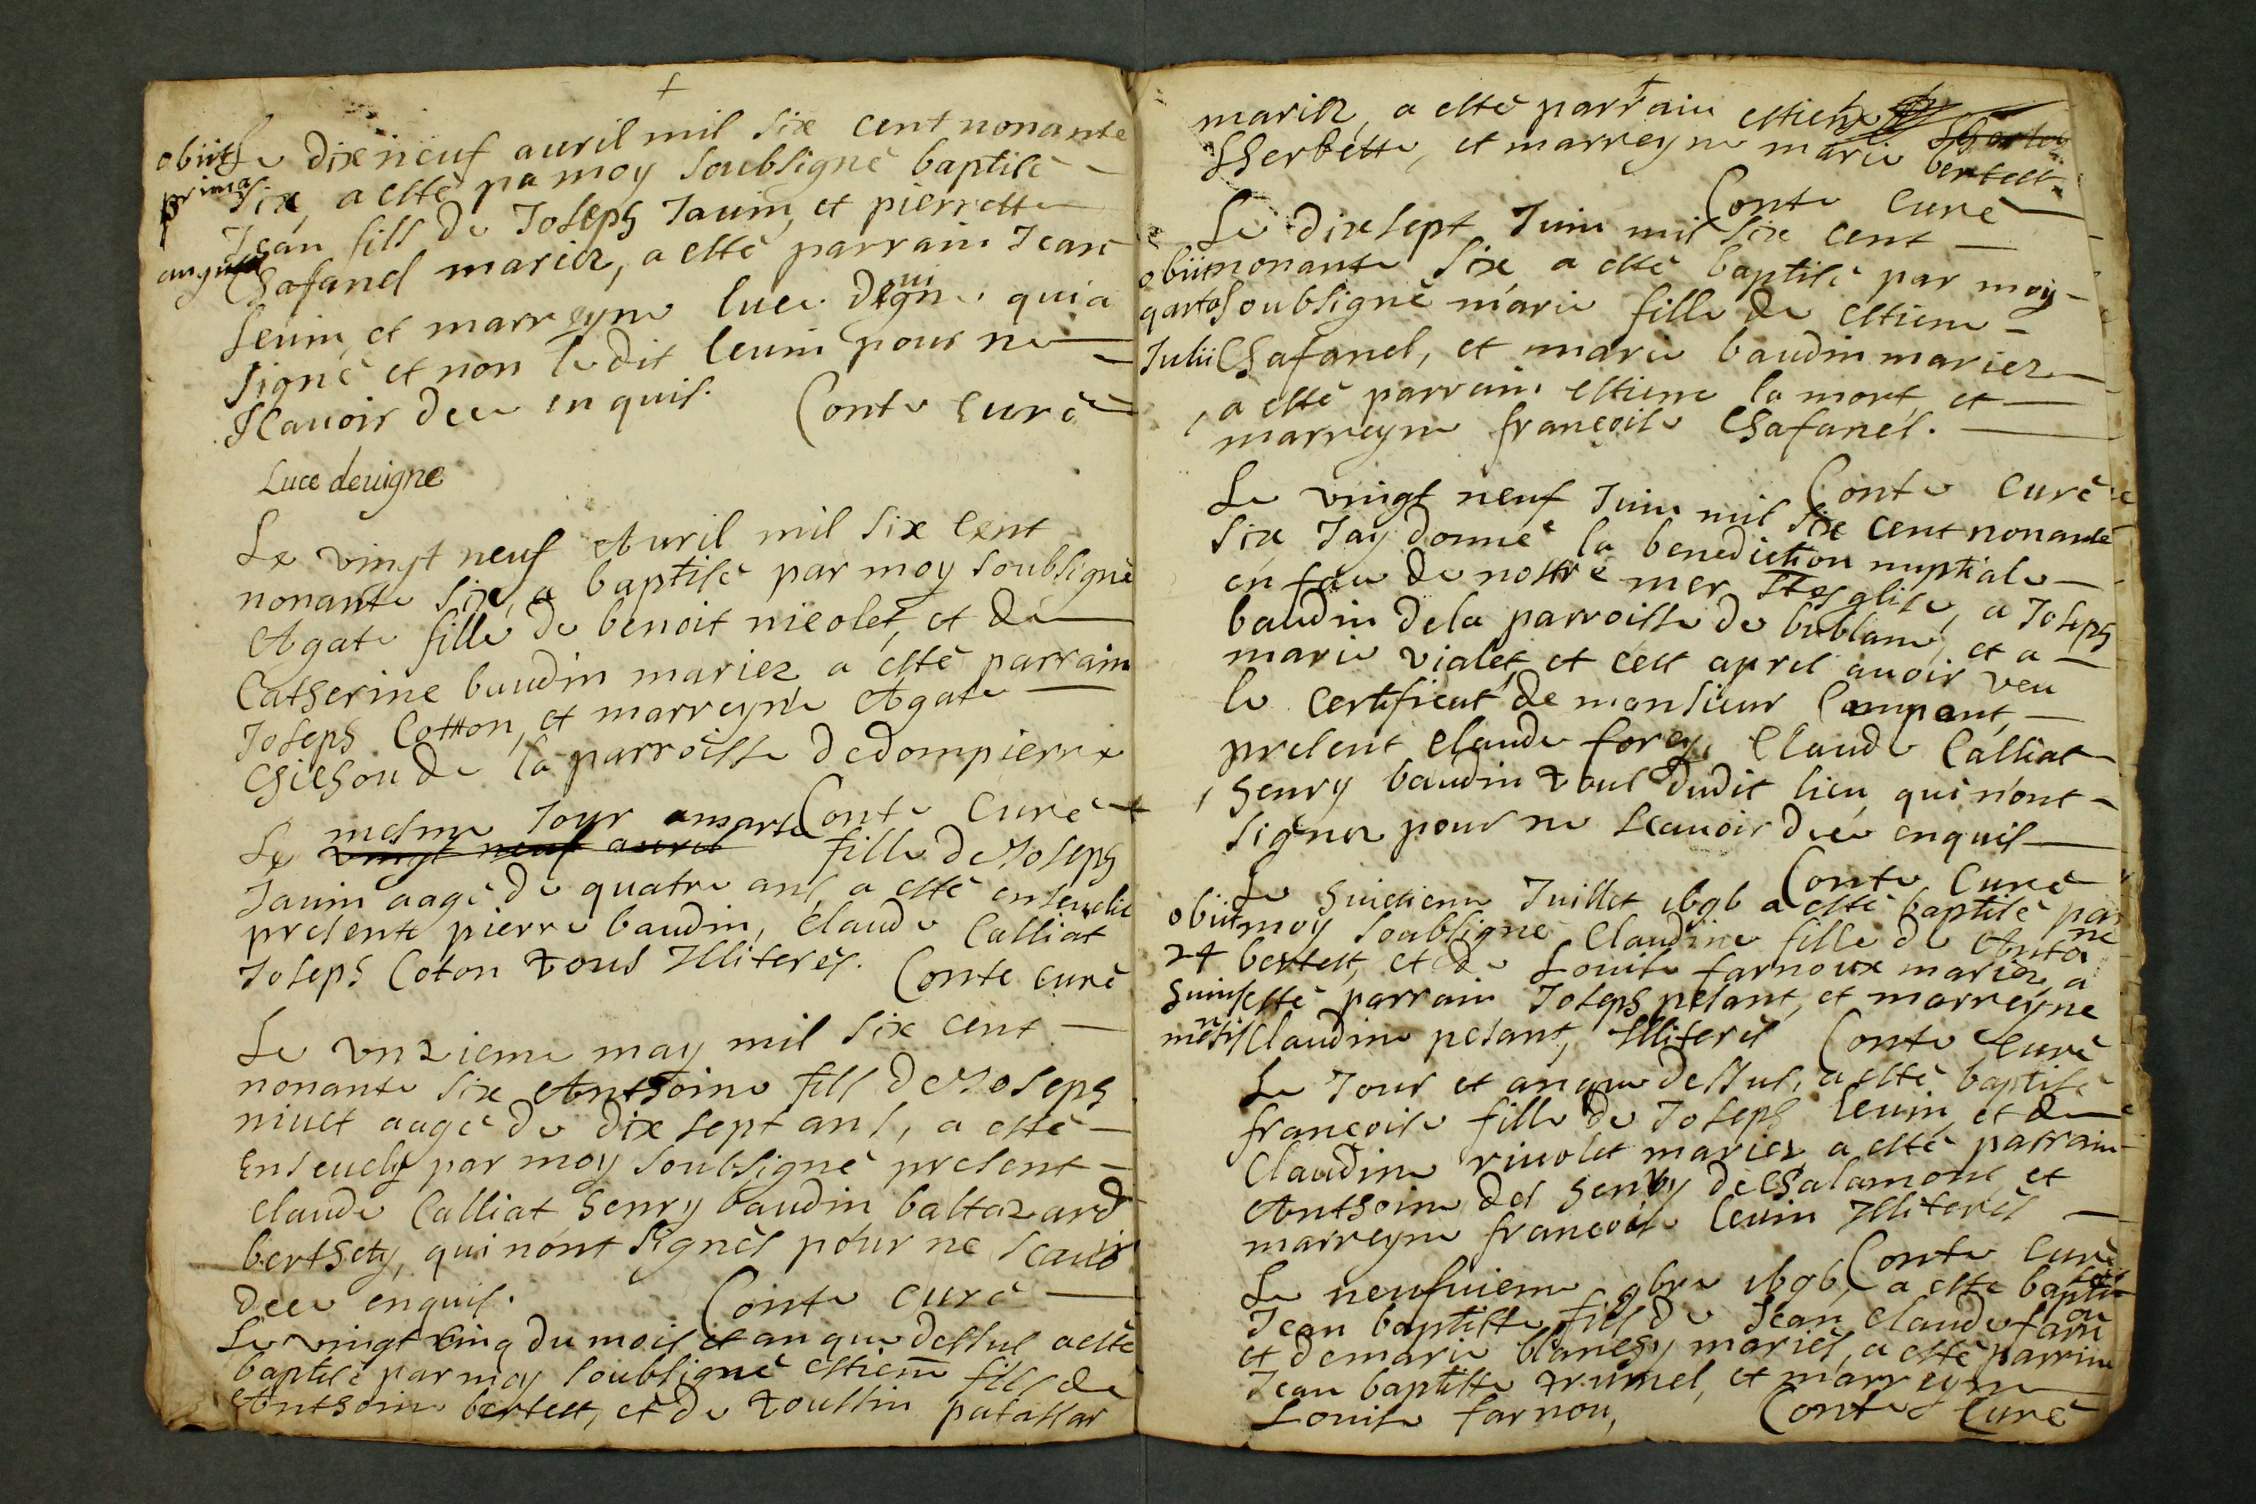 Le dix neuf auril mil six cent nonante
obiit
prima
augusti
six, a esté pa moy soubsigné baptisé
Jean fils de Joseph Jauin, et pierrette
Chafanel mariez, a esté parrain Jean
leuin, et marreyne luce deuigne qui a
signé et non le dit leuin pour ne
scauoir de ce enquis. Conte curé
Luce deuigne
Le vingt neuf Auril mil six cent
nonante six, a baptisé par moy soubsigné
Agate fille de benoit nicolet, et de
Catherine baudin mariez a esté parrain
Joseph Cotton, et marreyne Agate
chichon de la parroisse de dompierre
Conte curé
mesme Jour
Le vingt neuf auril fille de Joseph
Jauin aagé de quatre ans, a esté enseuelie
presente pierre baudin, Claude Calliat
Joseph Coton tous Illiterés. Conte curé
Le vnzieme may mil six cent
nonante six Anthoine fils de Joseph
niuet aagé de dix sept ans, a esté
enseuely par moy soubsigné present
claude Calliat henry baudin baltazard
berthety, qui n'ont signés pour ne scauoir
de ce enquis. Conte curé
Le vingt cinq du mois et an que dessus a esté
baptisé par moy soubsigné estiene fils de
Anthoine bertest, et de toussin patassar
mariez, a esté parrain estiene
Sherbette, et marreyne marie bertest
Conte curé
Le dix sept Juin mil six cent
obiit
qarta
Julii
nonante six a esté baptisé par moy
soubsigné marie fille de estiene
Chafanel, et marie baudin mariez
a esté parrain estiene la mort, et
marreyne francoise Chafanel.
Conte curé
Le vingt neuf Juin mil six cent nonante
six Jay donné la benediction nuptiale
en face de nostre mer Ste esglise, a Joseph
baudin de la parroisse de bublane, et a
marie vialet, et cest apres auoir veu
le certificat de monsieur Campant,
present claude forey, Claude Calliat
henry baudin tous dudit lieu qui n'ont
signez pour ne scauoir de ce enquis
Conte Curé
Le huictieme Juillet 1696 a esté baptisé par
obiit
24
huius
mensis
moy soubsigné Claudine fille de Antoine
bertest, et de Louise farnoux mariez, a
esté parrain Joseph pesant, et marreyne
Claudine pesant, Illiterés Conte Curé
Le Jour et an que dessus, a esté baptisé
francoise fille de Joseph leuin, et de
Claudine riuolet mariez a esté parrain
Anthoine del henry de Chalamont, et
marreyne francoise leuin Illiterés
Conte curé
Le neufuieme 9bre 1696, a esté baptisé
Jean baptiste fils de Jean claude farnou
et de marie blanchy mariés, a esté parrain
Jean baptiste trumel, et marreyne
Louise farnou, Conte Curé